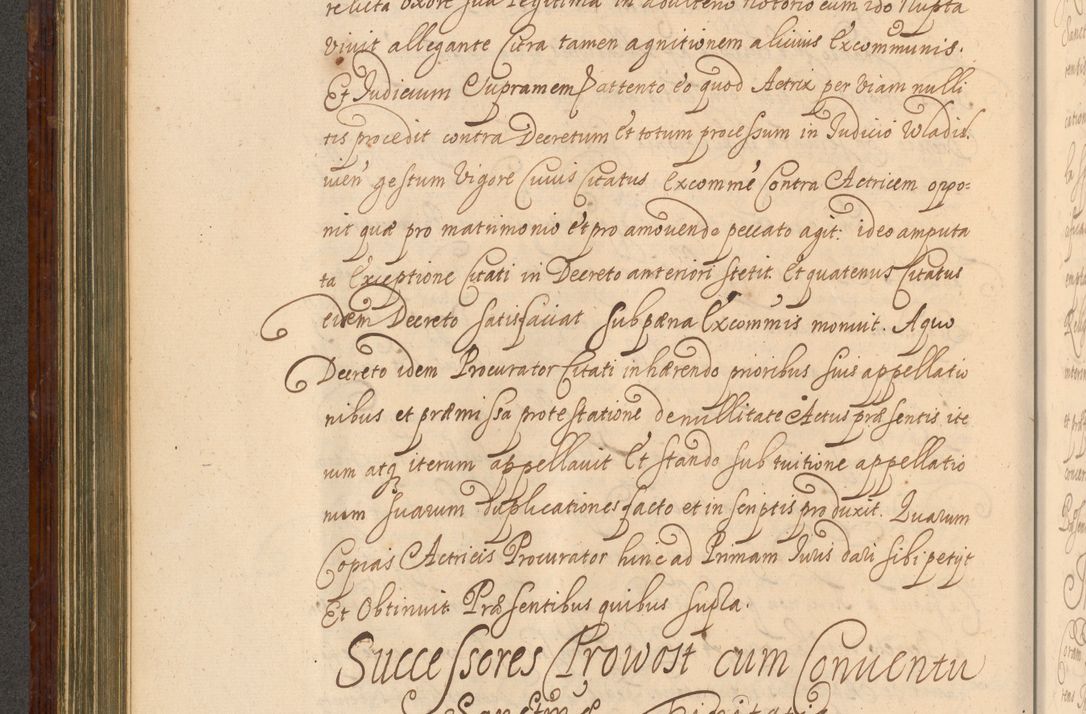 relicta Uxore sua legitima in adulterio notorio cum ido Nupta
vivit allegante Citra tamen agnitionem alicuius Excommunis.
Et Judicium Supramem attento eo quod Actrix per viam nulli
tis procedit contra Decretum Et totum processum in Judicio Wladis.
uien gestum Vigore Cuius Citatus Excomme Contra Actricem oppo=
nit quæ pro matrimonio et pro amovendo peccato agit: ideo amputa
ta Exceptione Citati in Decreto anteriori stetit. Et quatenus Citatus
eidem Decreto satisfaciat sub pæna Excommis monuit. A quo
Decreto idem Procurator Citati inhærendo prioribus suis appellatio
nibus et præmissa protestatione de nullitate Actus præsentis ite
rum atq3 iterum appellavit Et stando sub tuitione appellatio
num suarum duplicationes facto et in scriptis produxit. Quarum
Copias Actricis Procurator hinc ad Primam Juris dari sibi petijt
Et Obtinuit Præsentibus quibus supla.
Successores Prowost cum Conventu
Sanctmæ Trinitatis